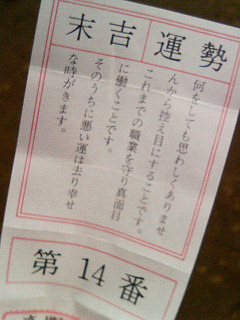 運勢
末吉
何をしても思わしくありませ
んから控え目にすることです。
これまでの職業を守り真面目
に働くことです。
そのうちに悪い運は去り幸せ
な時がきます。
第14番